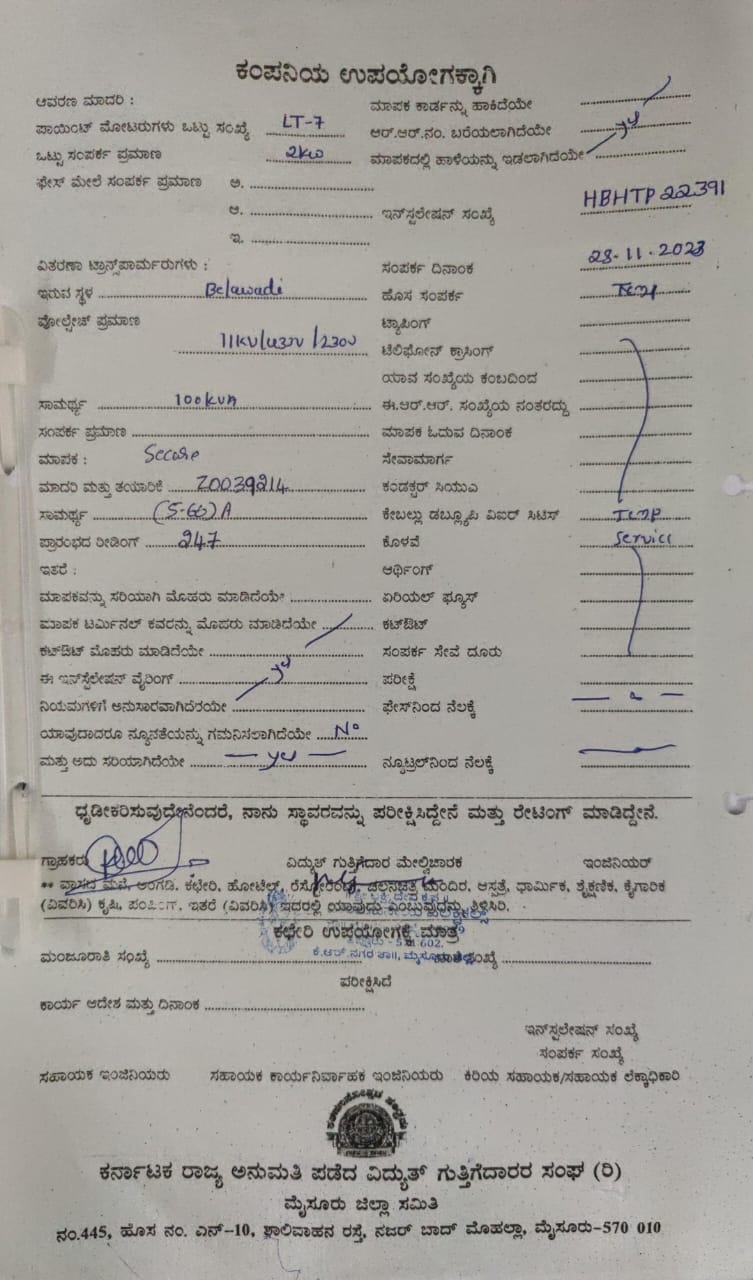 ಕಂಪನಿಯ ಉಪಯೋಗಕ್ಕಾಗಿ
ಆವರಣ ಮಾದರಿ :
ಮಾಪಕ ಕಾರ್ಡನ್ನು ಹಾಕಿದೆಯೇ
ಪಾಯಿಂಟ್ ಮೋಟರುಗಳು ಒಟ್ಟು ಸಂಖ್ಯೆ LT-7
ಆರ್.ಆರ್.ನಂ. ಬರೆಯಲಾಗಿದೆಯೇ
ಒಟ್ಟು ಸಂಪರ್ಕ ಪ್ರಮಾಣ 2kw
ಮಾಪಕದಲ್ಲಿ ಹಾಳೆಯನ್ನು ಇಡಲಾಗಿದೆಯೇ
ಫೇಸ್ ಮೇಲೆ ಸಂಪರ್ಕ ಪ್ರಮಾಣ ಅ.
ಆ.
ಇನ್‌ಸ್ಟಲೇಷನ್ ಸಂಖ್ಯೆ HBHTP22391
ಇ.
ವಿತರಣಾ ಟ್ರಾನ್ಸ್‌ಪಾರ್ಮರುಗಳು :
ಸಂಪರ್ಕ ದಿನಾಂಕ 28.11.2023
ಇರುವ ಸ್ಥಳ Belawadi
ಹೊಸ ಸಂಪರ್ಕ Temp
ವೋಲ್ಟೇಜ್ ಪ್ರಮಾಣ 11KV/433V/230V
ಟ್ಯಾಪಿಂಗ್
ಟೆಲಿಫೋನ್ ಕ್ರಾಸಿಂಗ್
ಯಾವ ಸಂಖ್ಯೆಯ ಕಂಬದಿಂದ
ಸಾಮರ್ಥ್ಯ 100kVA
ಈ.ಆರ್.ಆರ್. ಸಂಖ್ಯೆಯ ನಂತರದ್ದು
ಸಂಪರ್ಕ ಪ್ರಮಾಣ
ಮಾಪಕ ಓದುವ ದಿನಾಂಕ
ಮಾಪಕ : Secure
ಸೇವಾಮಾರ್ಗ
ಮಾದರಿ ಮತ್ತು ತಯಾರಿಕೆ Z0039214
ಕಂಡಕ್ಟರ್ ಸಿಯುಎ
ಸಾಮರ್ಥ್ಯ (5-60)A
ಕೇಬಲ್ಲು ಡಬ್ಲ್ಯೂಪಿ ವಿಐರ್ ಸಿಟಿಸ್ Temp
ಪ್ರಾರಂಭದ ರೀಡಿಂಗ್ 247
ಕೊಳವೆ Service
ಇತರೆ :
ಆರ್ಥಿಂಗ್
ಮಾಪಕವನ್ನು ಸರಿಯಾಗಿ ಮೊಹರು ಮಾಡಿದೆಯೇ
ಏರಿಯಲ್ ಫ್ಯೂಸ್
ಮಾಪಕ ಟರ್ಮಿನಲ್ ಕವರನ್ನು ಮೊಹರು ಮಾಡಿದೆಯೇ
ಕಟ್‌ಔಟ್
ಕಟ್‌ಔಟ್ ಮೊಹರು ಮಾಡಿದೆಯೇ
ಸಂಪರ್ಕ ಸೇವೆ ದೂರು
ಈ ಇನ್‌ಸ್ಟಲೇಷನ್ ವೈರಿಂಗ್
ಪರೀಕ್ಷೆ
ನಿಯಮಗಳಿಗೆ ಅನುಸಾರವಾಗಿದೆಯೇ
ಫೇಸ್‌ನಿಂದ ನೆಲಕ್ಕೆ
ಯಾವುದಾದರೂ ನ್ಯೂನತೆಯನ್ನು ಗಮನಿಸಲಾಗಿದೆಯೇ No
ಮತ್ತು ಅದು ಸರಿಯಾಗಿದೆಯೇ – yes –
ನ್ಯೂಟ್ರಲ್‌ನಿಂದ ನೆಲಕ್ಕೆ
ಧೃಡೀಕರಿಸುವುದೇನೆಂದರೆ, ನಾನು ಸ್ಥಾವರವನ್ನು ಪರೀಕ್ಷಿಸಿದ್ದೇನೆ ಮತ್ತು ರೇಟಿಂಗ್ ಮಾಡಿದ್ದೇನೆ.
ಗ್ರಾಹಕರು ವಿದ್ಯುತ್ ಗುತ್ತಿಗೆದಾರ ಮೇಲ್ವಿಚಾರಕ ಇಂಜಿನಿಯರ್
** ವಾಸದ ಮನೆ, ಅಂಗಡಿ, ಕಛೇರಿ, ಹೋಟೆಲ್, ರೆಸ್ಟೋರೆಂಟ್, ಚಲನಚಿತ್ರ ಮಂದಿರ, ಆಸ್ಪತ್ರೆ, ಧಾರ್ಮಿಕ, ಶೈಕ್ಷಣಿಕ, ಕೈಗಾರಿಕ
(ವಿವರಿಸಿ) ಕೃಷಿ, ಪಂಪಿಂಗ್, ಇತರೆ (ವಿವರಿಸಿ) ಇದರಲ್ಲಿ ಯಾವುದು ಎಂಬುವುದನ್ನು ತಿಳಿಸಿರಿ.
ಕಛೇರಿ ಉಪಯೋಗಕ್ಕೆ ಮಾತ್ರ
602.
ಕೆ.ಆರ್.ನಗರ ತಾ||, ಮೈಸೂರು
ಮಂಜೂರಾತಿ ಸಂಖ್ಯೆ
ಪರೀಕ್ಷಿಸಿದೆ
ಕಾರ್ಯ ಆದೇಶ ಮತ್ತು ದಿನಾಂಕ
ಇನ್‌ಸ್ಟಲೇಷನ್ ಸಂಖ್ಯೆ
ಸಂಪರ್ಕ ಸಂಖ್ಯೆ
ಸಹಾಯಕ ಇಂಜಿನಿಯರು ಸಹಾಯಕ ಕಾರ್ಯನಿರ್ವಾಹಕ ಇಂಜಿನಿಯರು ಕಿರಿಯ ಸಹಾಯಕ/ಸಹಾಯಕ ಲೆಕ್ಕಾಧಿಕಾರಿ
ಕರ್ನಾಟಕ ರಾಜ್ಯ ಅನುಮತಿ ಪಡೆದ ವಿದ್ಯುತ್ ಗುತ್ತಿಗೆದಾರರ ಸಂಘ (ರಿ)
ಮೈಸೂರು ಜಿಲ್ಲಾ ಸಮಿತಿ
ನಂ.445, ಹೊಸ ನಂ. ಎನ್-10, ಶಾಲಿವಾಹನ ರಸ್ತೆ, ನಜರ್ ಬಾದ್ ಮೊಹಲ್ಲಾ, ಮೈಸೂರು-570 010